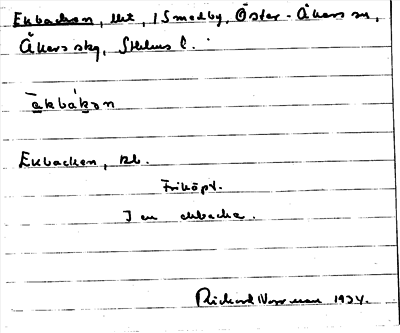 Ekbacken, lht, i Smedby, Öster-Åkers sn,
Åkers skg, Sthlms l.
Ekbacken, bb.
Friköpt.
I en ekbacke.
Richard Norrman 1934.